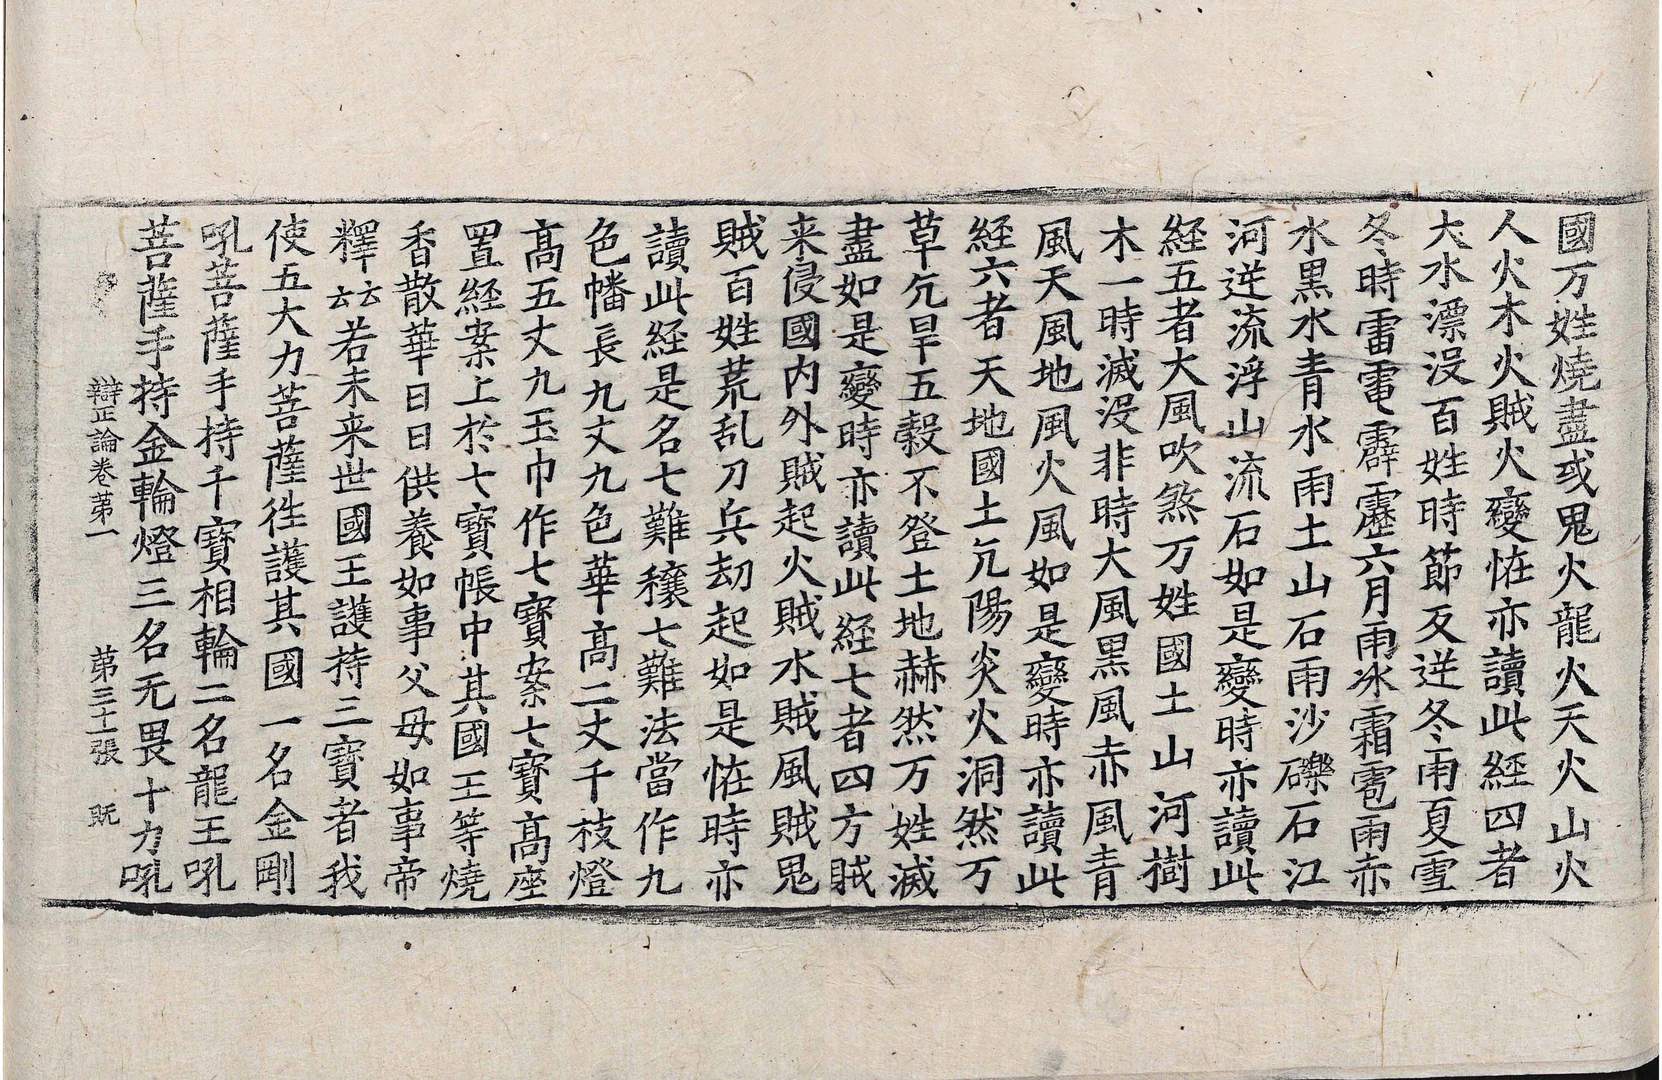 國万姓燒盡或鬼火龍火天火山火
人火木火賊火變恠亦讀此經四者
大水漂没百姓時節反逆冬雨夏雪
冬時雷電霹靂六月雨冰霜雹雨赤
水黒水青水雨土山石雨沙礫石江
河逆流浮山流石如是變時亦讀此
経五者大風吹煞万姓國土山河樹
木一時滅没非時大風黒風赤風青
風天風地風火風如是變時亦讀此
経六者天地國土亢陽炎火洞然万
草亢旱五穀不登土地赫然万姓滅
盡如是變時亦讀此経七者四方賊
来侵國内外賊起火賊水賊風賊鬼
賊百姓荒乱刀兵刼起如是恠時亦
讀此経是名七難穰七難法當作九
色幡長九丈九色華髙二丈千枝燈
髙五丈九玉巾作七寶案七寶髙座
置経案上於七寶帳中其國王等燒
香散華日日供養如事父母如事帝
釋云云若未来世國王護持三寶者我
使五大力菩薩徃護其國一名金剛
吼菩薩手持千寶相輪二名龍王吼
菩薩手持金輪燈三名无畏十力吼
辯正論卷第一 第三十張 既